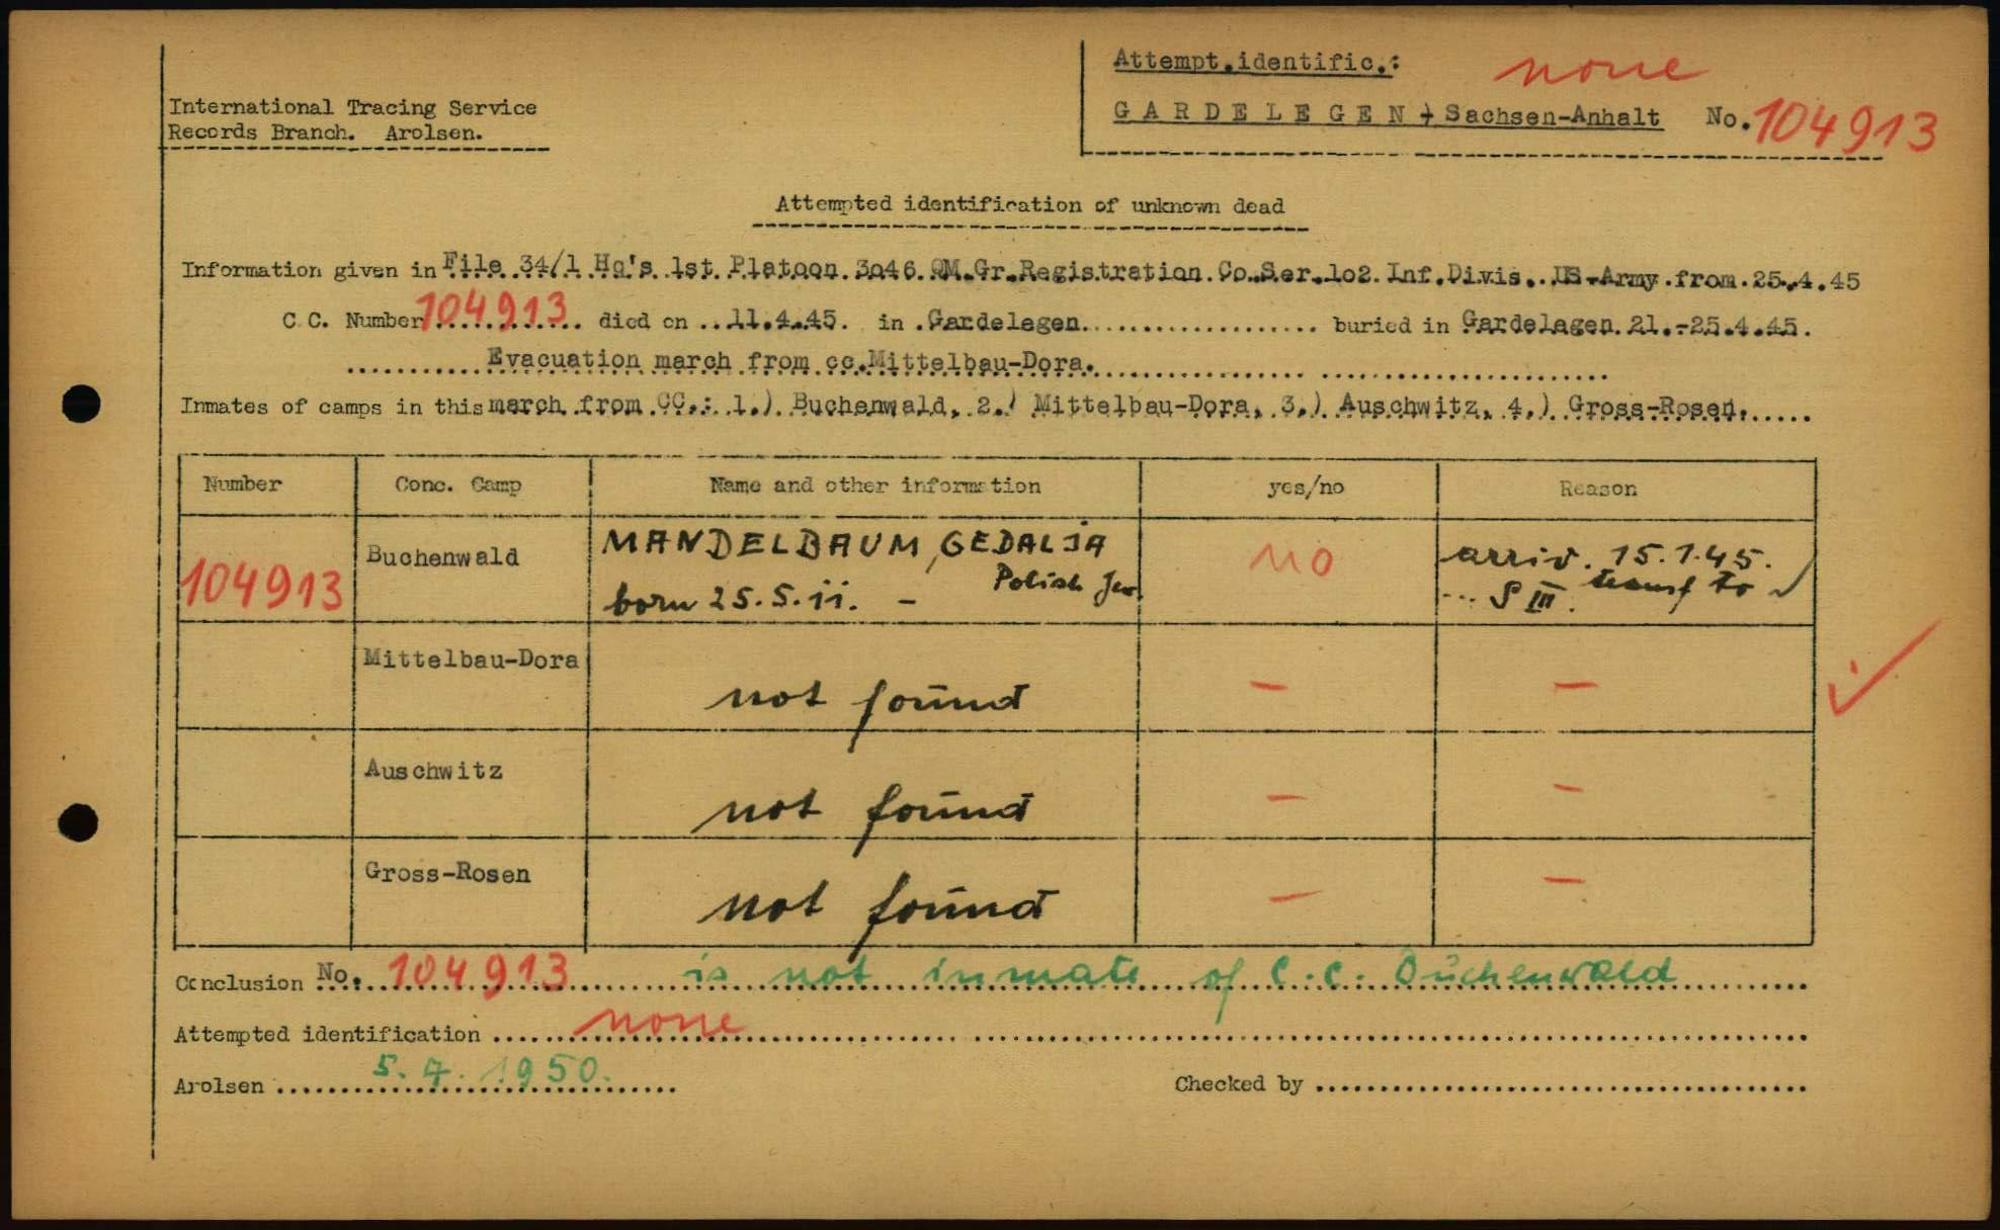 Attempt.identific.: none
International Tracing Service
Records Branch. Arolsen.
GARDELEGEN, Sachsen-Anhalt No. 104913
Attempted identification of unknown dead
Information given in File 34/1 Hq's 1st Platoon 3o46 QM.Gr.Registration.Co.Ser.1o2.Inf.Divis..US-Army.from.25.4.45
C.C. Number 104913 died on ..11.4.45. in .Gardelegen.................... buried in Gardelagen.21.-25.4.45.
Evacuation march from cc.Mittelbau-Dora.
Inmates of camps in this march from CC.: 1.) Buchenwald, 2.) Mittelbau-Dora, 3.) Auschwitz, 4.) Gross-Rosen.
Number Conc. Camp Name and other information yes/no Reason
104913 Buchenwald MANDELBAUM, GEDALJA no arriv. 15.1.45.
born 25.5.11. - Polish Jew ... S III. transf to
Mittelbau-Dora not found - -
Auschwitz not found - -
Gross-Rosen not found - -
Conclusion No. 104913 is not inmate of C.C. Buchenwald
Attempted identification none
Arolsen 5.7.1950. Checked by